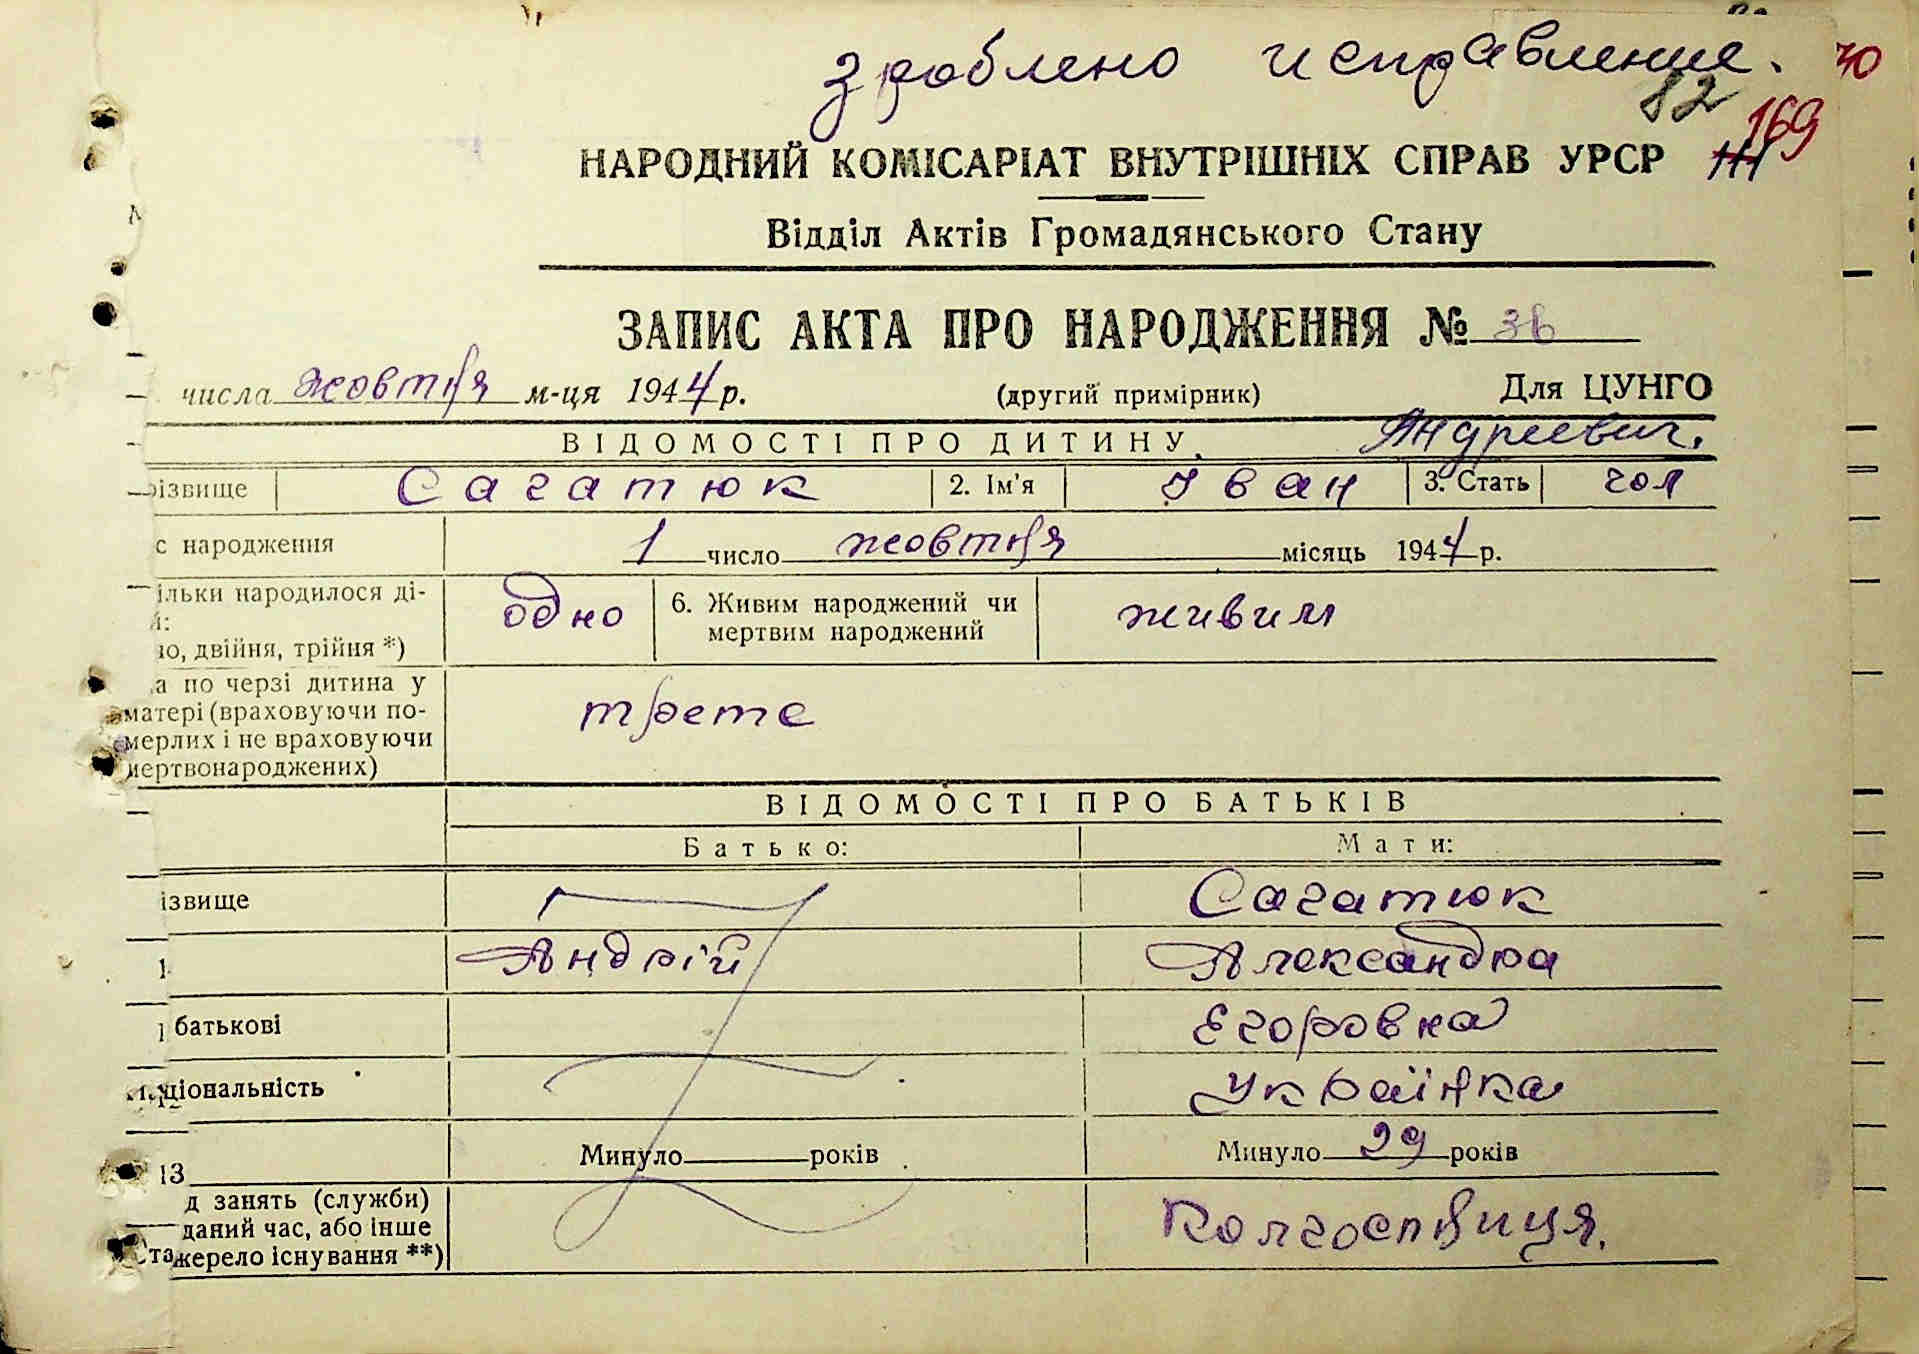 зроблено исправление.
40
82
169
111
НАРОДНИЙ КОМІСАРІАТ ВНУТРІШНІХ СПРАВ УРСР
Відділ Актів Громадянського Стану
ЗАПИС АКТА ПРО НАРОДЖЕННЯ № 36
числа жовтня м-ця 1944 р. (другий примірник) Для ЦУНГО
ВІДОМОСТІ ПРО ДИТИНУ. Андреевич.
різвище Сагатюк 2. Ім'я Іван 3. Стать чол
с народження 1 число жовтня місяць 1944 р.
ільки народилося ді-
й:
но, двійня, трійня *) одно 6. Живим народжений чи
мертвим народжений живим
а по черзі дитина у
матері (враховуючи по-
мерлих і не враховуючи
мертвонароджених) трете
ВІДОМОСТІ ПРО БАТЬКІВ
Батько: Мати:
ізвище Сагатюк
Андрій Александра
батькові Егоровна
ціональність Українка
13 Минуло років Минуло 29 років
д занять (служби)
даний час, або інше
жерело існування **) Колгоспниця.